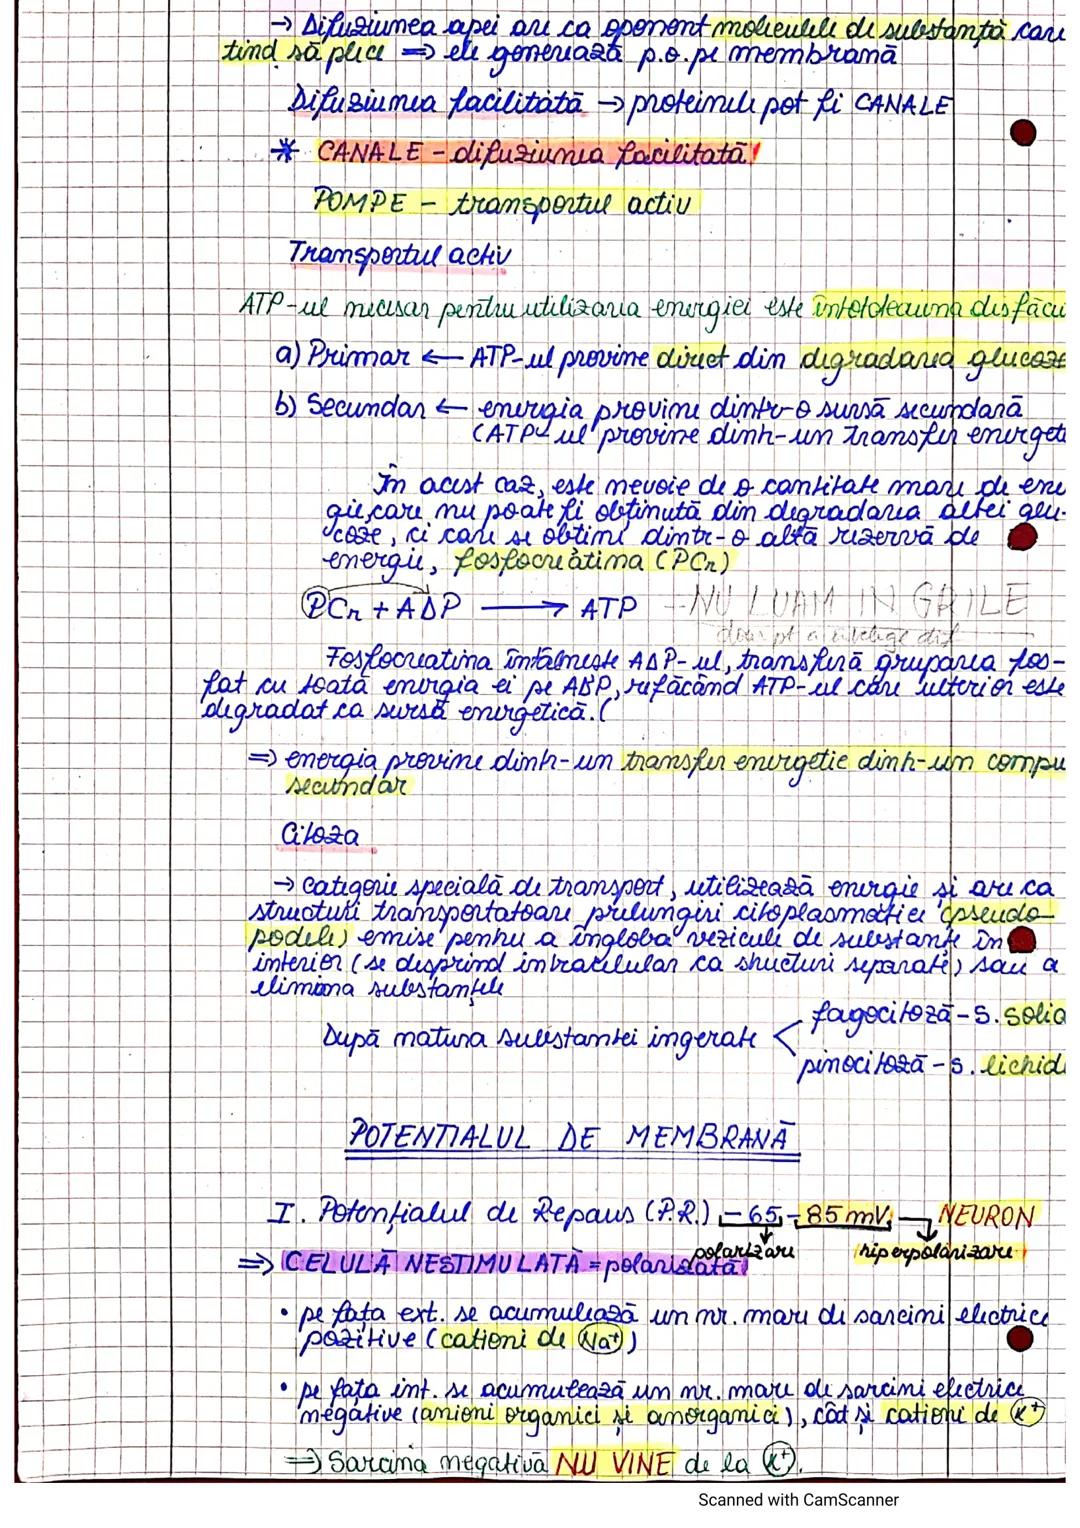 → Difuziunea apei are ca oponent moleculele de substanță care
tind să plece ⇒ ele generează p.o. pe membrană
Difuziunea facilitată → proteinele pot fi CANALE
* CANALE - difuziunea facilitată!
POMPE - transportul activ
Transportul activ
ATP-ul necesar pentru utilizarea energiei este întotdeauna desfăcu
a) Primar ← ATP-ul provine direct din degradarea glucoze
b) Secundar ← energia provine dintr-o sursă secundară
(ATP-ul provine dintr-un transfer energeti
În acest caz, este nevoie de o cantitate mare de ene
gie, care nu poate fi obținută din degradarea altei glu-
coze, ci care se obține dintr-o altă rezervă de
energie, fosfocreatina (PCr)
PCr + ADP → ATP - NU LUAM N GRILE
doar pt a intelege dif
Fosfocreatina întâlnește ADP-ul, transferă gruparea fos-
fat cu toată energia ei pe ADP, refăcând ATP-ul care ulterior este
degradat ca sursă energetică. (
⇒ energia provine dintr-un transfer energetic dintr-un compu
secundar
Citoza
→ categorie specială de transport, utilizează energie și are ca
structuri transportatoare prelungiri citoplasmatice (pseudo-
podele) emise pentru a îngloba vezicule de substanțe în
interior (se desprind intracelular ca structuri separate) sau a
elimina substanțele
După natura substanței ingerate < fagocitoză - s. solid
pinocitoză - s. lichid
POTENȚIALUL DE MEMBRANĂ
I. Potențialul de Repaus (P.R.) -65 -85 mV NEURON
polarizare hiperpolarizare
⇒ CELULĂ NESTIMULATĂ = polarizată
• pe fața ext. se acumulează un nr. mare de sarcini electrice
pozitive (cationi de Na⁺)
• pe fața int. se acumulează un nr. mare de sarcini electrice
negative (anioni organici și anorganici), cât și cationi de K⁺
⇒ Sarcina negativă NU VINE de la K⁺.
Scanned with CamScanner